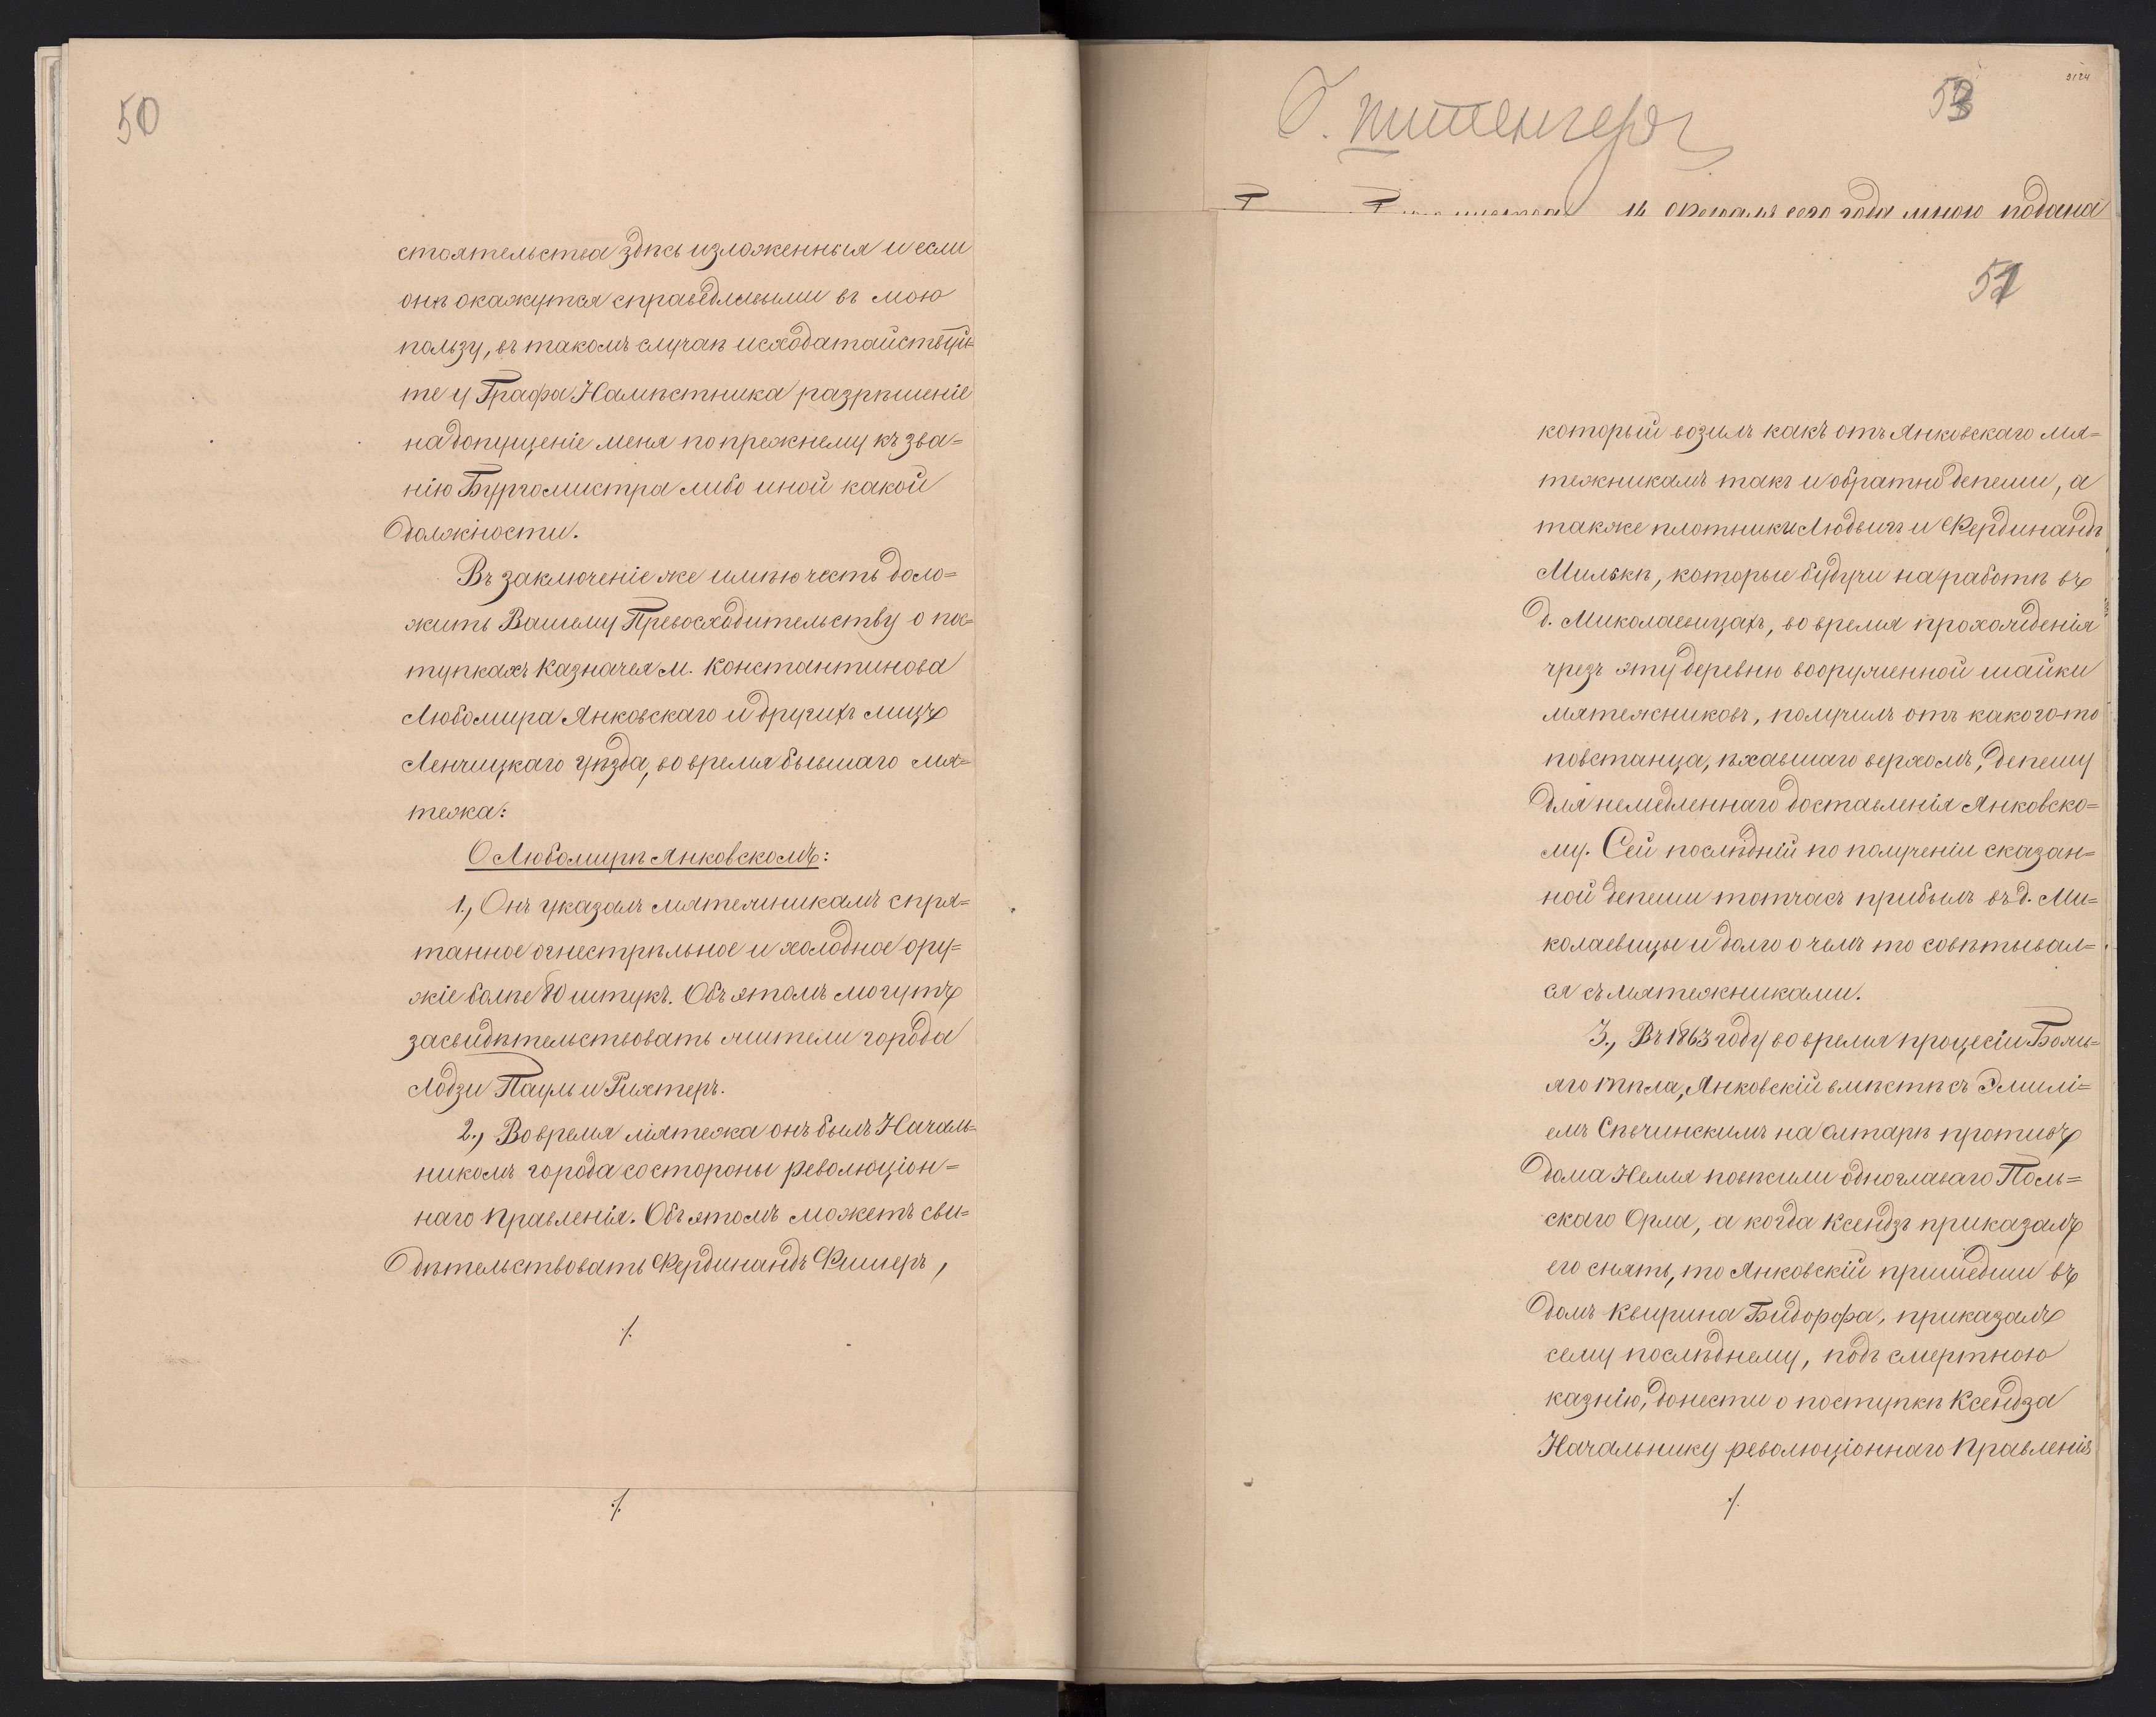 50
стоятельства здѣсь изложенныя и если
онѣ окажутся справедливыми въ мою
пользу, въ такомъ случаѣ исходатайствуй-
те у Графа Намѣстника разрѣшеніе
на допущеніе меня по прежнему къ зва=
нію Бургомистра либо иной какой
должности.
Въ заключеніе же имѣю честь доло=
жить Вашему Превосходительству о пос=
тупкахъ Казначея м. Константинова
Любомира Янковскаго и другихъ лицъ
Ленчицкаго уѣзда, во время бывшаго мя=
тежа:
О Любомирѣ Янковскомъ:
1., Онъ указалъ мятежникамъ спря=
танное огнестрѣльное и холодное ору=
жіе болѣе 80 штукъ. Объ этомъ могутъ
засвидѣтельствовать жители города
Лодзи Пауль и Рихтеръ.
2., Во время мятежа онъ былъ Началь=
никомъ города со стороны революціон=
наго Правленія. Объ этомъ можетъ сви=
дѣтельствовать Фердинандъ Фишеръ,
./.
./.
53
3124
14 Февраля сего года мною подана
51
который возилъ какъ отъ Янковскаго мя=
тежникамъ такъ и обратно депеши, а
также плотники Людвигъ и Фердинандъ
Мильке, которые будучи на работѣ въ
д. Миколаевицахъ, во время прохожденія
чрезъ эту деревню вооруженной шайки
мятежниковъ, получилъ отъ какого-то
повстанца, ѣхавшаго верхомъ, депешу
для немедленнаго доставленія Янковско=
му. Сей послѣдній по полученіи сказан=
ной депеши тотчасъ прибылъ въ д. Ми=
колаевицы и долго о чемъ то совѣтывал=
ся съ мятежниками.
3., Въ 1863 году во время процесіи Божь=
яго тѣла, Янковскій вмѣстѣ съ Эмилі=
емъ Снѣчинскимъ на алтарѣ противъ
дома Нелля повѣсили одноглаваго Поль=
скаго Орла, а когда Ксендзъ приказалъ
его снять, то Янковскій пришедши въ
домъ Квирина Бидорфа, приказалъ
сему послѣднему, подъ смертною
казнію, донести о поступкѣ Ксендза
Начальнику революціоннаго Правленія
./.